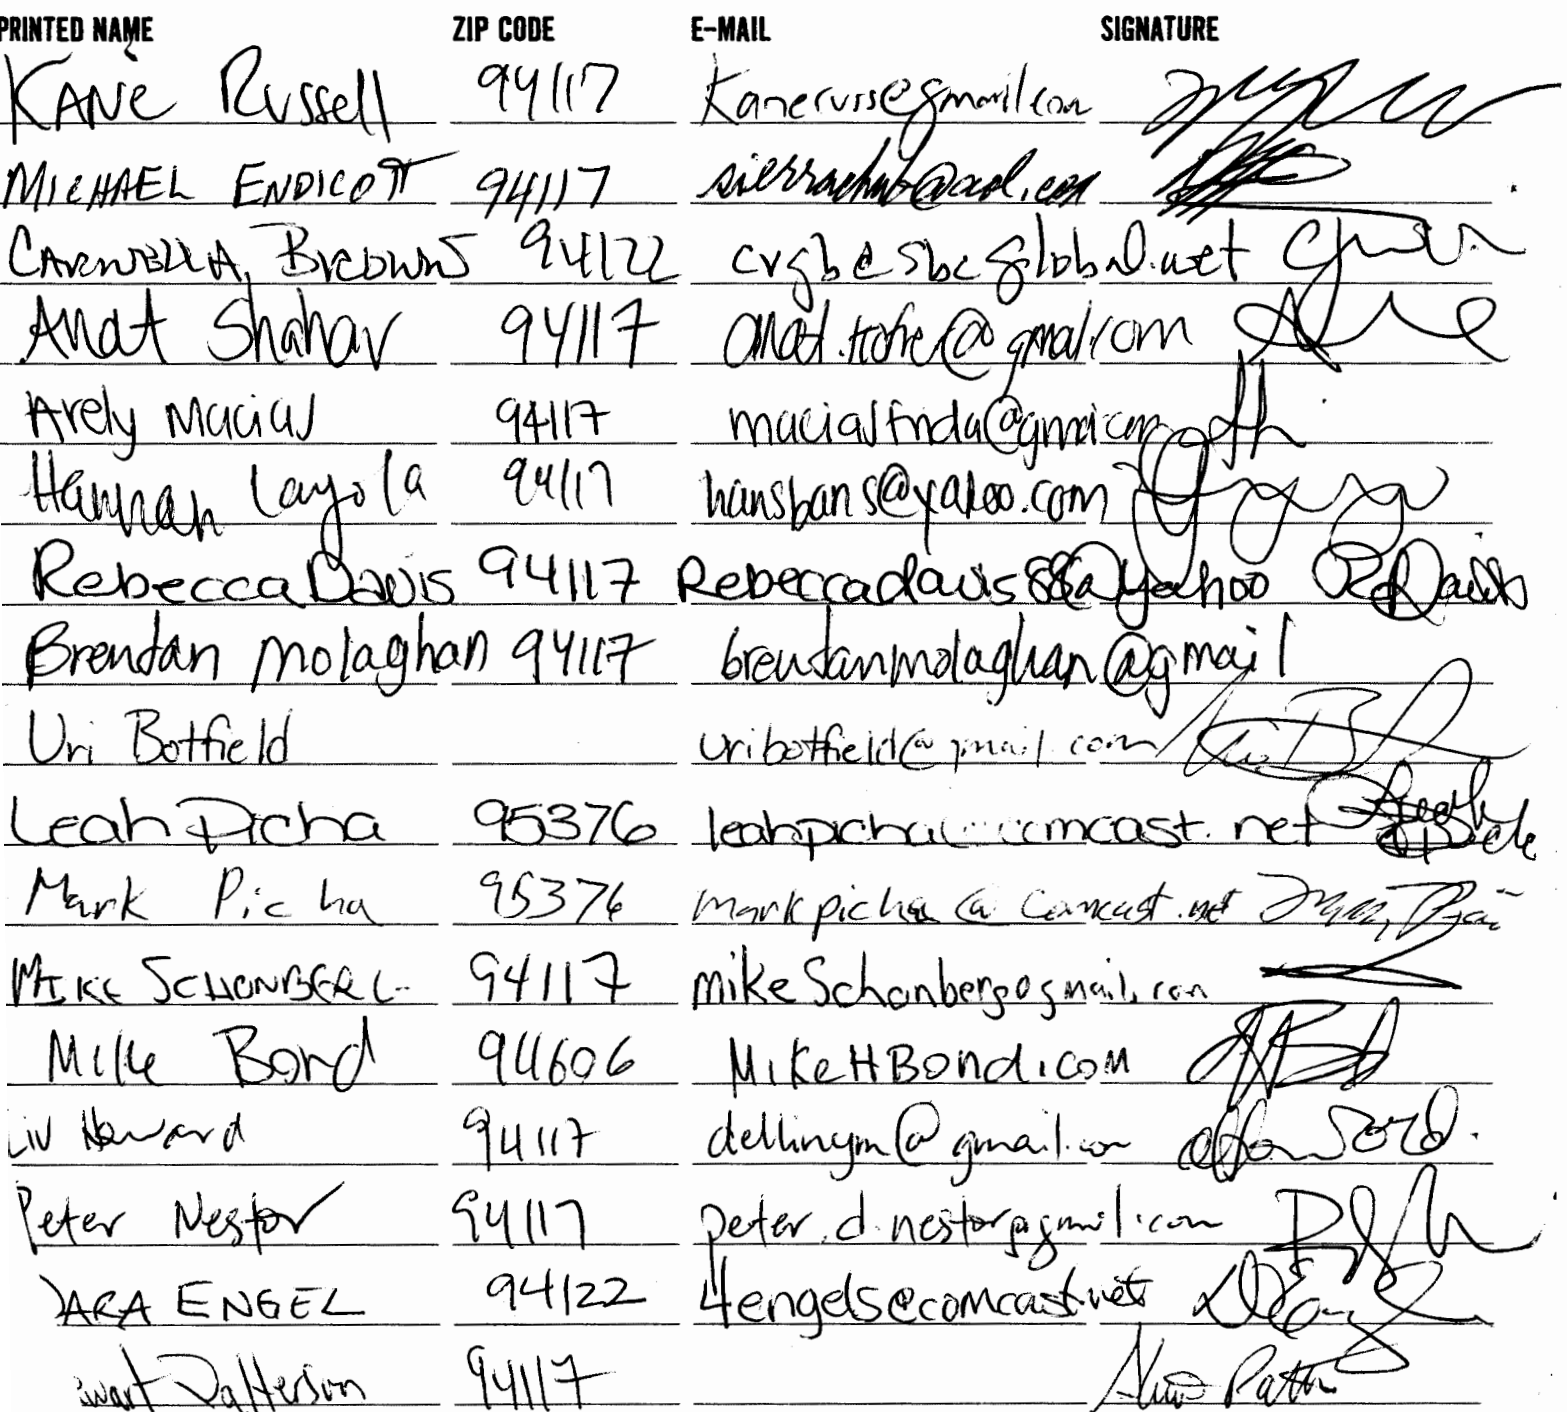 PRINTED NAME ZIP CODE E-MAIL SIGNATURE
KANE Russell 94117 Kaneruss@gmail.com
MICHAEL ENDICOTT 94117 sierraclub@aol.com
Brown 94122 cvgb@sbcglobal.net
Anat Shahar 94117 @gmail.com
Arely Macias 94117
Hannah Layola 94117 hansbans@yahoo.com
Rebecca Davis 94117 Rebeccadavis88@Yahoo R Davis
Brendan Molaghan 94117 brendanmolaghan@gmail
Uri Botfield uribotfield@gmail.com
Leah Picha 95376 leahpicha comcast.net
Mark Picha 95376 markpicha@comcast.net
MIKE SCHONBERG 94117 mikeSchonberg@gmail.com
Mike Bond 94606 MikeHBond.com
Liv Howard 94117 dellinym@gmail.com
Peter Nestor 94117 peter.d.nestor@gmail.com
ARA ENGEL 94122 4engels@comcast.net
wart Patterson 94117